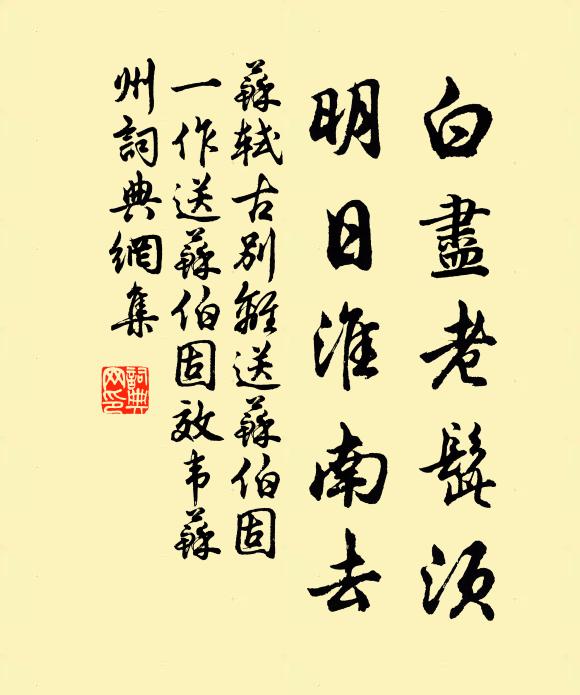 白盡老髭須
明日淮南去
蘇軾古別離送蘇伯固
一作送蘇伯固效韦蘇
州詞典網集
詞典網印